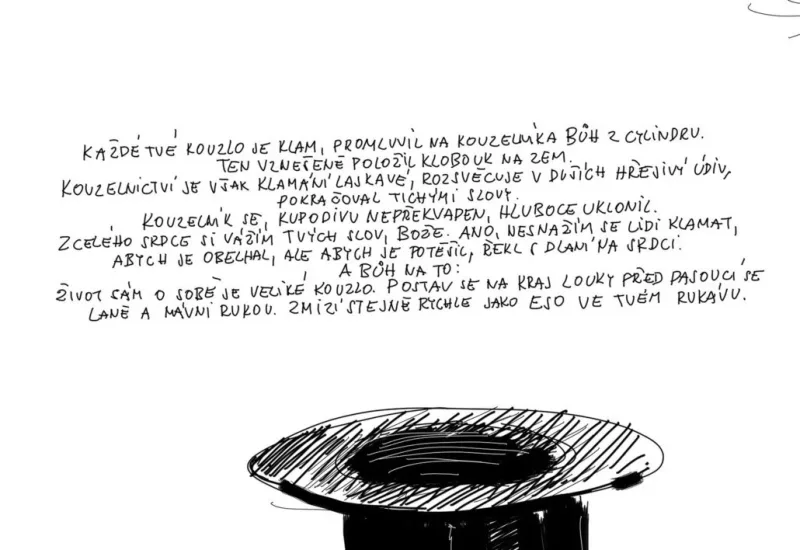 KAŽDÉ TVÉ KOUZLO JE KLAM, PROMLUVIL NA KOUZELNÍKA BŮH Z CYLINDRU.
TEN VZNEŠENĚ POLOŽIL KLOBOUK NA ZEM.
KOUZELNICTVÍ JE VŠAK KLAMÁNÍ LASKAVÉ, ROZSVĚCUJE V DUŠÍCH HŘEJIVÝ ÚDIV,
POKRAČOVAL TICHÝMI SLOVY.
KOUZELNÍK SE, KUPODIVU NEPŘEKVAPEN, HLUBOCE UKLONIL.
Z CELÉHO SRDCE SI VÁŽÍM TVÝCH SLOV, BOŽE. ANO, NESNAŽÍM SE LIDI KLAMAT,
ABYCH JE OBELHAL, ALE ABYCH JE POTĚŠIL, ŘEKL S DLANÍ NA SRDCI.
A BŮH NA TO:
ŽIVOT SÁM O SOBĚ JE VELIKÉ KOUZLO. POSTAV SE NA KRAJ LOUKY PŘED PASOUCÍ SE
LANĚ A MÁVNI RUKOU. ZMIZÍ STEJNĚ RYCHLE JAKO ESO VE TVÉM RUKÁVU.